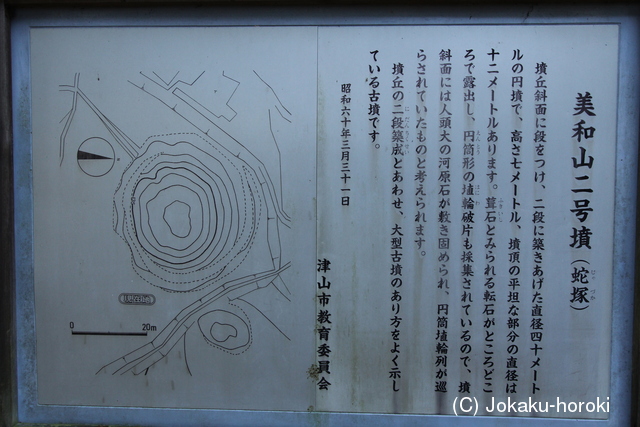 美和山二号墳（蛇塚）
墳丘斜面に段をつけ、二段に築きあげた直径四十メート
ルの円墳で、高さ七メートル、墳頂の平坦な部分の直径は
十二メートルあります。葺石とみられる転石がところどこ
ろで露出し、円筒形の埴輪破片も採集されているので、墳
斜面には人頭大の河原石が敷き固められ、円筒埴輪列が巡
らされていたものと考えられます。
墳丘の二段築成とあわせ、大型古墳のあり方をよく示し
ている古墳です。
昭和六十年三月三十一日
津山市教育委員会
現在地
0 20m
(C) Jokaku-horoki